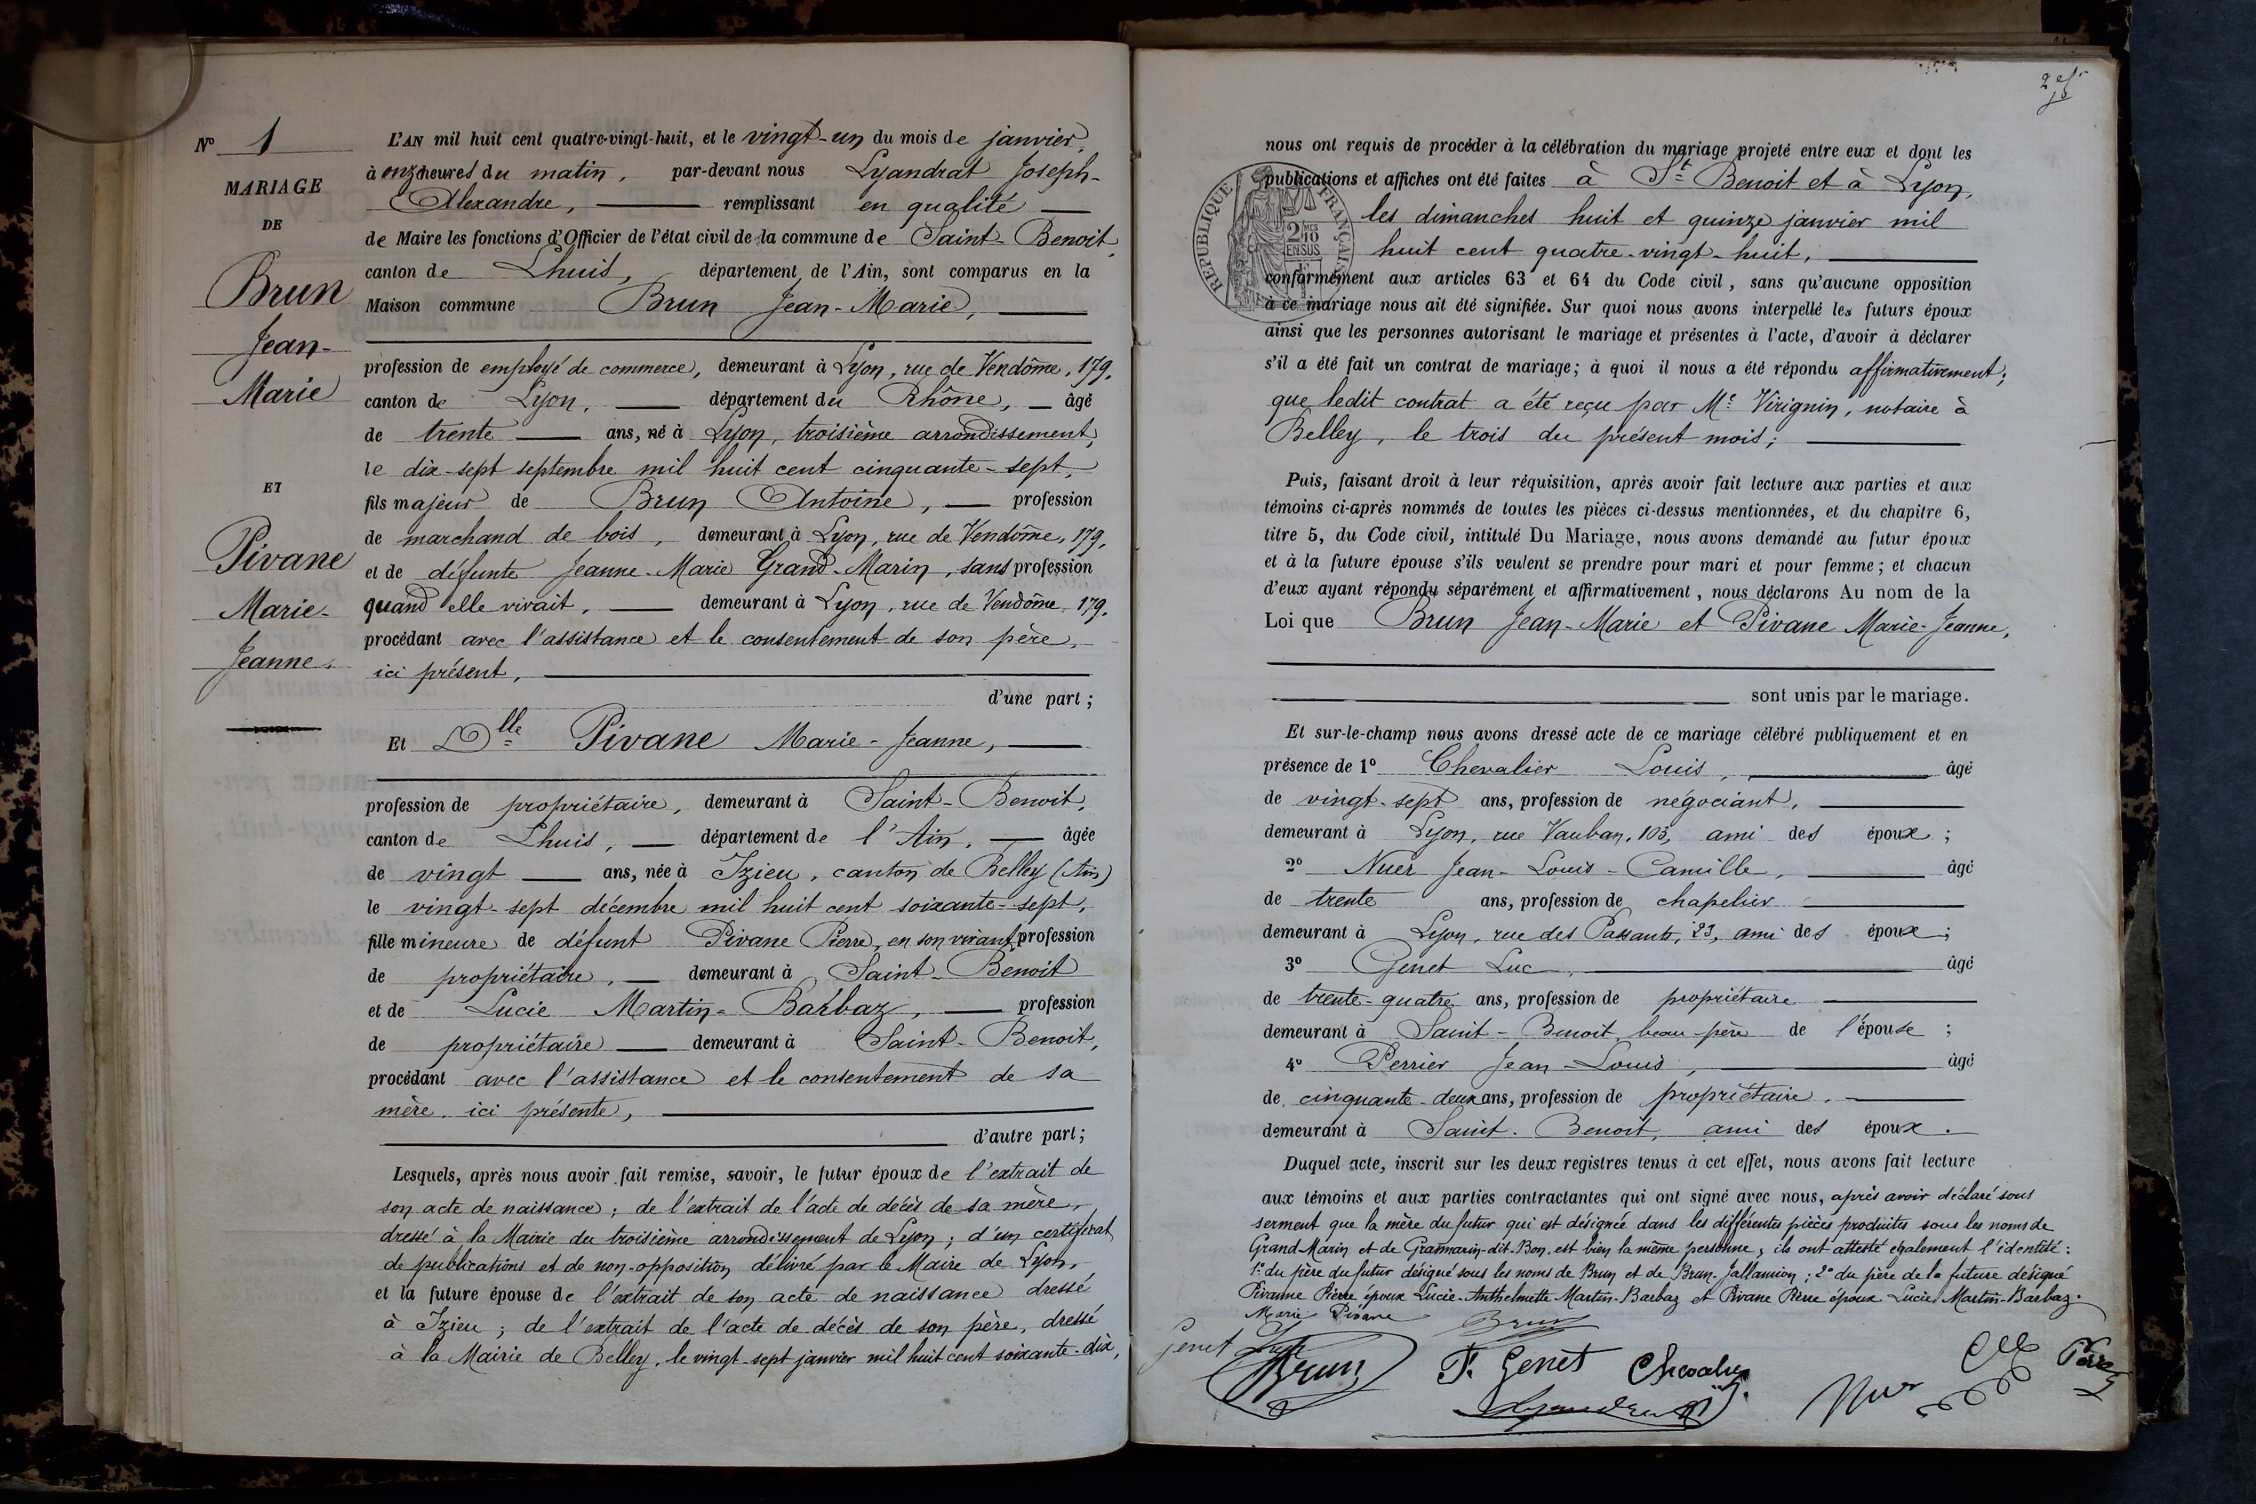 Nº 1
MARIAGE
DE
Brun
Jean-
Marie
ET
Pivane
Marie-
Jeanne.
L'AN mil huit cent quatre-vingt-huit, et le vingt-un du mois de janvier,
à onze heures du matin, par-devant nous Lyandrat Joseph-
Alexandre, remplissant en qualité
de Maire les fonctions d'Officier de l'état civil de la commune de Saint-Benoit,
canton de Lhuis, département de l'Ain, sont comparus en la
Maison commune Brun Jean-Marie,
profession de employé de commerce, demeurant à Lyon, rue de Vendôme, 179,
canton de Lyon, département du Rhône, âgé
de trente ans, né à Lyon, troisième arrondissement,
le dix-sept septembre mil huit cent cinquante-sept,
fils majeur de Brun Antoine, profession
de marchand de bois, demeurant à Lyon, rue de Vendôme, 179,
et de défunte Jeanne-Marie Grand-Marin, sans profession
quand elle vivait, demeurant à Lyon, rue de Vendôme, 179,
procédant avec l'assistance et le consentement de son père,
ici présent,
d'une part;
Et Dlle Pivane Marie-Jeanne,
profession de propriétaire, demeurant à Saint-Benoit,
canton de Lhuis, département de l'Ain, âgée
de vingt ans, née à Izieu, canton de Belley (Ain)
le vingt-sept décembre mil huit cent soixante-sept,
fille mineure de défunt Pivane Pierre, en son vivant profession
de propriétaire, demeurant à Saint-Benoit
et de Lucie Martin-Barbaz, profession
de propriétaire demeurant à Saint-Benoit,
procédant avec l'assistance et le consentement de sa
mère ici présente,
d'autre part;
Lesquels, après nous avoir fait remise, savoir, le futur époux de l'extrait de
son acte de naissance; de l'extrait de l'acte de décès de sa mère,
dressé à la Mairie du troisième arrondissement de Lyon; d'un certificat
de publications et de non-opposition délivré par le Maire de Lyon,
et la future épouse de l'extrait de son acte de naissance dressé
à Izieu; de l'extrait de l'acte de décès de son père, dressé
à la Mairie de Belley, le vingt-sept janvier mil huit cent soixante-dix,
nous ont requis de procéder à la célébration du mariage projeté entre eux et dont les
publications et affiches ont été faites à St Benoit et à Lyon,
les dimanches huit et quinze janvier mil
huit cent quatre-vingt-huit,
RÉPUBLIQUE FRANÇAISE
2 MES 10
EN SUS
conformément aux articles 63 et 64 du Code civil, sans qu'aucune opposition
à ce mariage nous ait été signifiée. Sur quoi nous avons interpellé les futurs époux
ainsi que les personnes autorisant le mariage et présentes à l'acte, d'avoir à déclarer
s'il a été fait un contrat de mariage; à quoi il nous a été répondu affirmativement;
que ledit contrat a été reçu par Me Virignin, notaire à
Belley, le trois du présent mois;
Puis, faisant droit à leur réquisition, après avoir fait lecture aux parties et aux
témoins ci-après nommés de toutes les pièces ci-dessus mentionnées, et du chapitre 6,
titre 5, du Code civil, intitulé Du Mariage, nous avons demandé au futur époux
et à la future épouse s'ils veulent se prendre pour mari et pour femme; et chacun
d'eux ayant répondu séparément et affirmativement, nous déclarons Au nom de la
Loi que Brun Jean-Marie et Pivane Marie-Jeanne,
sont unis par le mariage.
Et sur-le-champ nous avons dressé acte de ce mariage célébré publiquement et en
présence de 1º Chevalier Louis, âgé
de vingt-sept ans, profession de négociant,
demeurant à Lyon, rue Vauban, 103, ami des époux;
2º Nuer Jean-Louis-Camille, âgé
de trente ans, profession de chapelier
demeurant à Lyon, rue des Passants, 23, ami des époux;
3º Genet Luc, âgé
de trente-quatre ans, profession de propriétaire
demeurant à Saint-Benoit, beau père de l'épouse;
4º Perrier Jean-Louis, âgé
de cinquante-deux ans, profession de propriétaire,
demeurant à Saint-Benoit, ami des époux.
Duquel acte, inscrit sur les deux registres tenus à cet effet, nous avons fait lecture
aux témoins et aux parties contractantes qui ont signé avec nous, après avoir déclaré sous
serment que la mère du futur qui est désignée dans les différentes pièces produites sous les noms de
Grand-Marin et de Granmarin-dit-Bon, est bien la même personne; ils ont attesté également l'identité:
1º du père du futur désigné sous les noms de Brun et de Brun-Jallamion; 2º du père de la future désigné
Pivanne Pierre époux Lucie-Anthelmette Martin-Barbaz et Pivane Pierre époux Lucie Martin-Barbaz.
Marie Pivane Brun
Genet Luc
Brun F. Genet Chevalier
Lyandrat Nuer Perrier